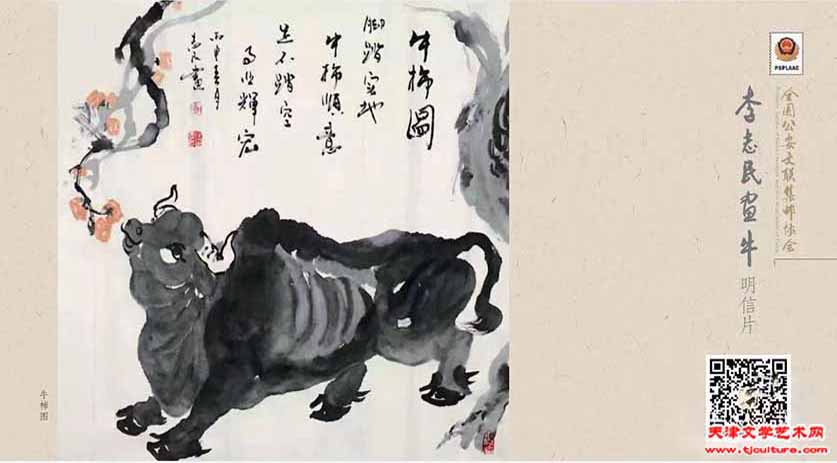 牛柿圖
脚踏实地
牛柿順意
不踏空
事业輝宏
丙申春月
志民畫
牛柿图
PSPLAAC
全国公安文联集邮协会
李志民画牛
明信片
天津文学艺术网
www.tjculture.com